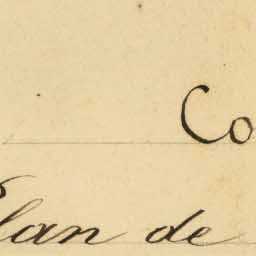 Co
Plan de